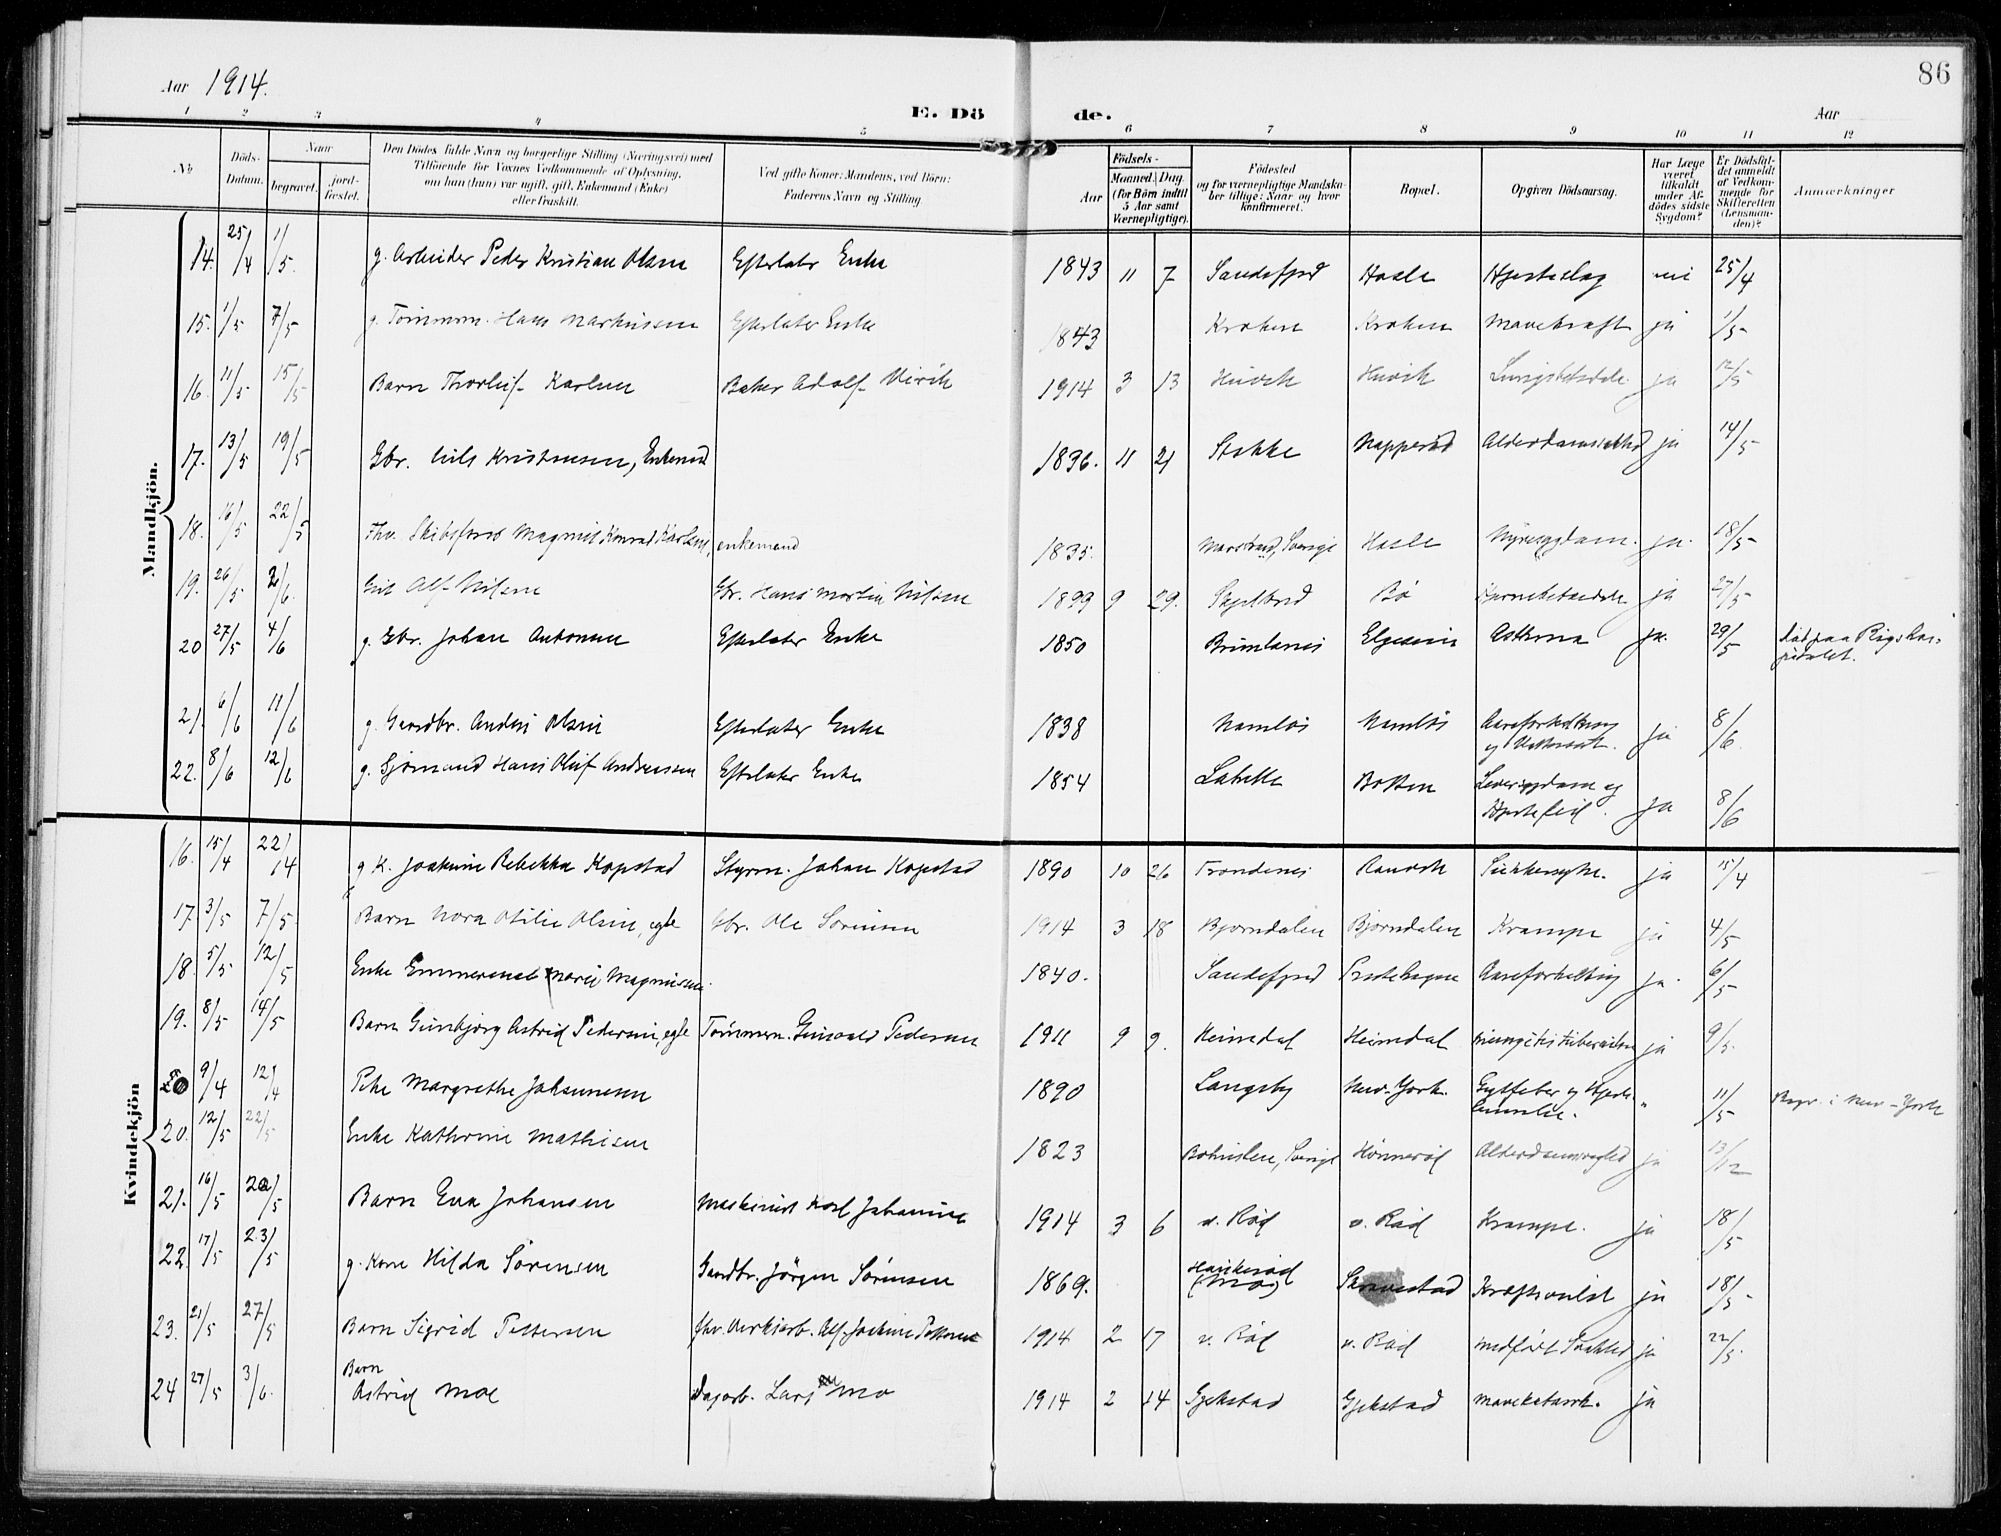 86
Aar 1914.
Aar
E. Dö de.
1 2 3 4 5 6 7 8 9 10 11 12
No
Döds-Datum.
Naar
begravet.
jord-fæstet.
Den Dödes fulde Navn og borgerlige Stilling (Næringsvei) med
Tilföiende for Voxnes Vedkommende af Oplysning,
om han (hun) var ugift, gift, Enkemand (Enke)
eller fraskilt.
Ved gifte Koner: Mandens, ved Börn:
Faderens Navn og Stilling.
Födsels-
Aar
Maaned. Dag.
(for Börn indtil
5 Aar samt
Værnepligtige).
Födested
og for værnepligtige Mandska-
ber tillige: Naar og hvor
konfirmeret.
Bopæl.
Opgiven Dödsaarsag.
Har Læge
været
tilkaldt
under Af-
dödes sidste
Sygdom?
Er Dödsfal-
det anmeldt
af Vedkom-
mende for
Skifteretten
(Lensman-
den)?
Anmærkninger
Mandkjön.
14. 25/4 1/5. g. Arbeider Peder Kristian Olsen Efterlater Enke 1843 11 7 Sandefjord Hasle Hjerteslag nei 25/4
15. 1/5 7/5 g. Tømmrm. Hans Markussen Efterlater Enke 1843 Kroken Kroken Mavekræft ja 1/5
16. 11/5 15/5 Barn Thorleif Karlsen Baker Adolf 1914 3 13 Huvik Huvik ja 12/5
17. 13/5 19/5 Gbr. Nils Kristensen, Enkemd 1836. 11 21 Stokke ja 14/5
18. 16/5 22/5 Fhv. Skibsfører Magnus Konrad Karlsen, enkemand 1835. Marstrand, Sverige Hasle Nyresygdom. ja. 18/5
19. 26/5 2/6. Alf Nilsen Gbr. Hans Martin Nilsen 1899 9 29. Skjelbred Bø ja 27/5
20 27/5 4/6 g. Gbr. Johan Antonsen Efterlater Enke 1850 Brunlanes Elgesem Asthma ja. 29/5 død paa Rigshos-
pitalet.
21. 6/6 11/6 g. Gaardbr. Anders Olsen Efterlater Enke 1838 Namløs Namløs Aareforkalkning
og ja 8/6.
22. 8/6 12/6 g. Sjømand Hans Oluf Andreassen Efterlater Enke 1854 Leversygdom og
Hjertefeil. ja 8/6
Kvindekjön
16. 15/4 22/14 g K. Joakime Rebekka Kopstad Styrm. Johan Kopstad 1890 10 26 Trondenes Ranvik Sukkersyke. ja 15/4
17. 3/5 7/5. Barn Nora Otilie Olsen, egte Gbr. Ole Sørensen 1914 3 18 Bjørndalen Bjørndalen Krampe ja 4/5
18. 5/5 12/5 Enke Emmerense Marie Magnussen. 1840. Sandefjord Prestehagen Aareforkalkning ja. 6/5
19. 8/5 14/5 Barn Gunbjørg Astrid Pedersen, egte Tømmerm. Pedersen 1911 9 9. Heimdal Heimdal ja 9/5.
9/4 12/4 Pike Margrethe Johannesen 1890 Langeby New-York. og Hjerte-
" 11/5 Begr. i New-York
20. 12/5 22/5 Enke Kathrine Mathisen 1823 Bohuslen, Sverige ja 13/12
21. 16/5 20/5 Barn Eva Johansen Maskinist Karl Johansen 1914 3 6 v. Rød v. Rød Krampe. ja 18/5
22. 17/5 23/5 g. Kone Hilda Sørensen Gaardbr. Jørgen Sørensen 1869. Haukerød
(Mo) Kræftsvulst ja 18/5
23. 21/5 27/5 Barn Sigrid Pettersen fhv. 1914 2 17 v. Rød v. Rød medført Svakhed ja 22/5.
24 27/5 3/6. Barn
Astrid Moe Dagarb. Lars Mo 1914 2 14 Gjekstad Gjekstad Mavekatarrh. ja